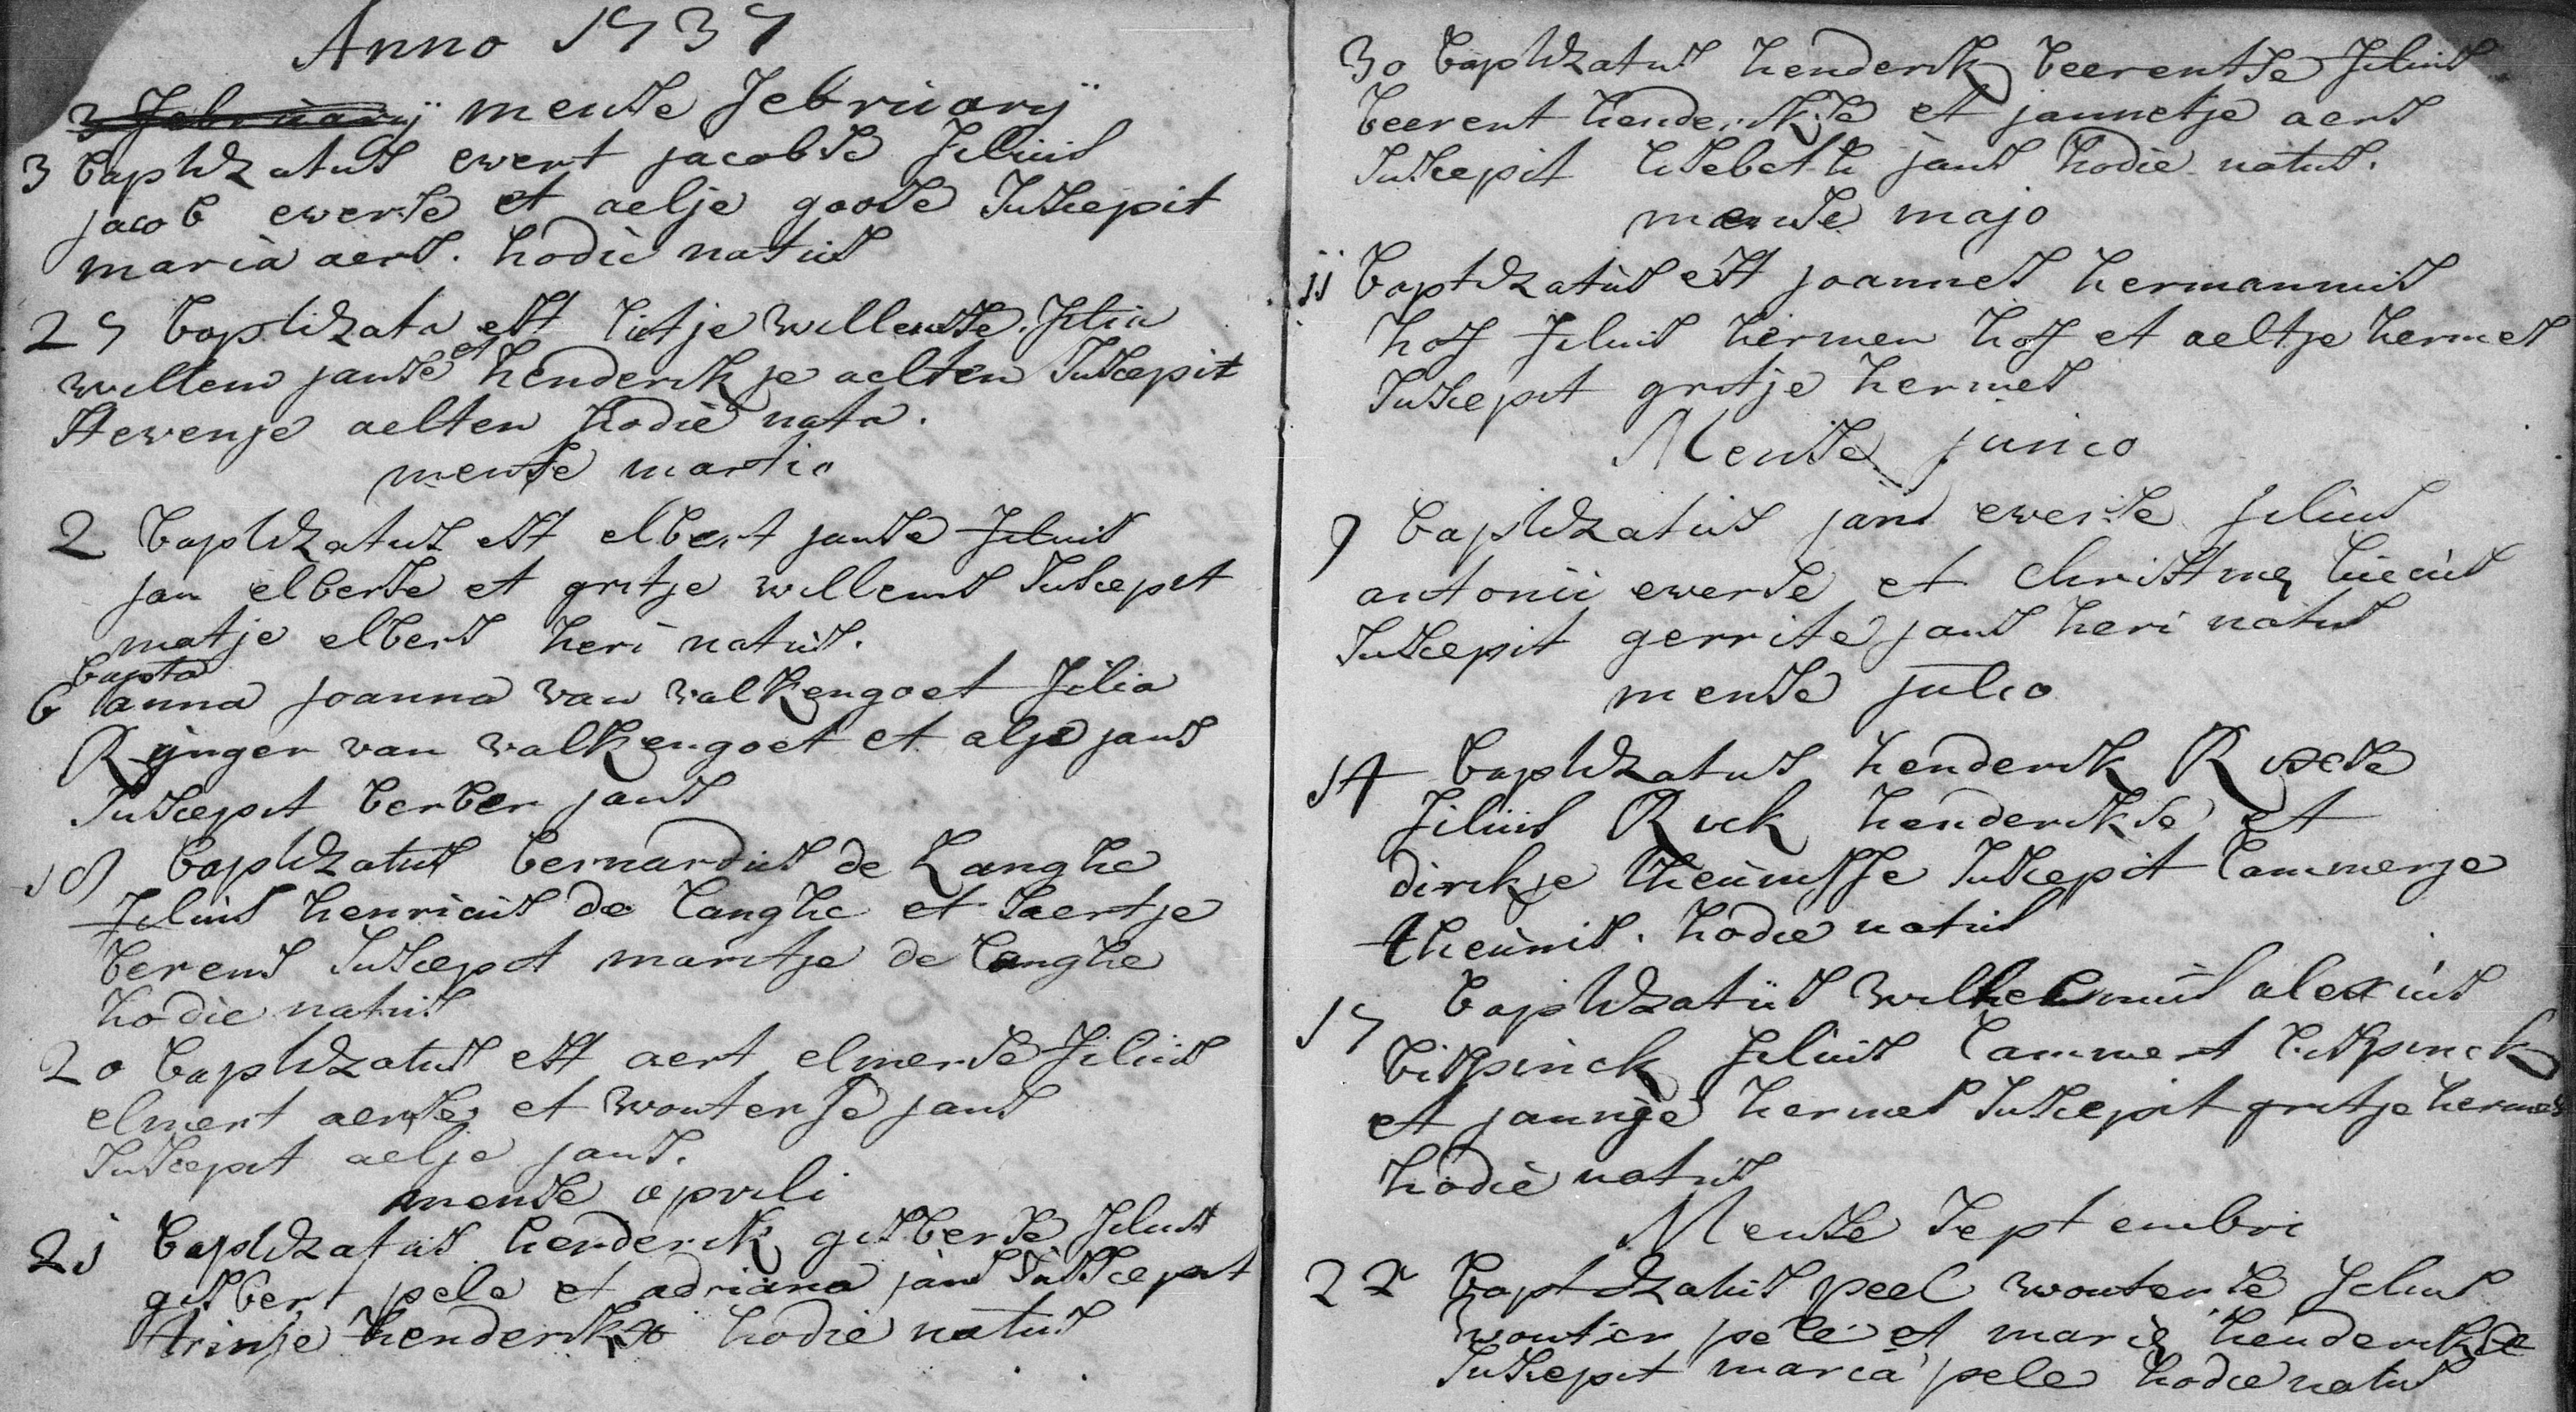 Anno 1737
3 february mense february
3 baptizatus ewert jacobse filius
jacob ewerse et aelje goose suscepit
maria aers. hodie natus
27 baptizata est lutje willemse filia
willem janse et henderikje aelten suscepit
stevenje aelten hodie nata.
mense martio
2 baptizatus est elbert janse filius
jan elberse et gritje willems suscepit
matje elbers heri natus.
bapta
6 anna joanna van valkengoet filia
Rijnger van valkengoet et alje jans
suscepit berber jans
18 baptizatus bernardus de Langhe
filius henricus de langhe et saertje
berens suscepit maritje de langhe
hodie natus
20 baptizatus est aert elmerse filius
elmert aerse et wouterse jans
suscepit aelje jans.
mense aprili
21 baptizatus henderik gisberse filius
gisbert pele et adriana jans suscepit
trinje henderikx hodie natus
30 baptizatus henderik beerentse filius
beerent henderikse et jannetje aers
suscepit lisebeth jans hodie natus.
mense majo
11 baptizatus est joannes hermannus
hof filius hermen hof et aeltje hermes
suscepit gritje hermes
Mense junio
9 baptizatus jan ewerse filius
antonii ewerse et christine
suscepit gerritje jans heri natus
mense julio
14 baptizatus henderik
filius Rick henderikse et
dirckje theunisse suscepit lammerje
theunis. hodie natus
17 baptizatus wilhelmus alexius
bispinck filius lammert bispinck
et jannije hermes suscepit gritje hermes
hodie natus
Mense septembri
22 baptizatus peel wouterse filius
wouter pele et marie henderikse
suscepit maria pele hodie natus